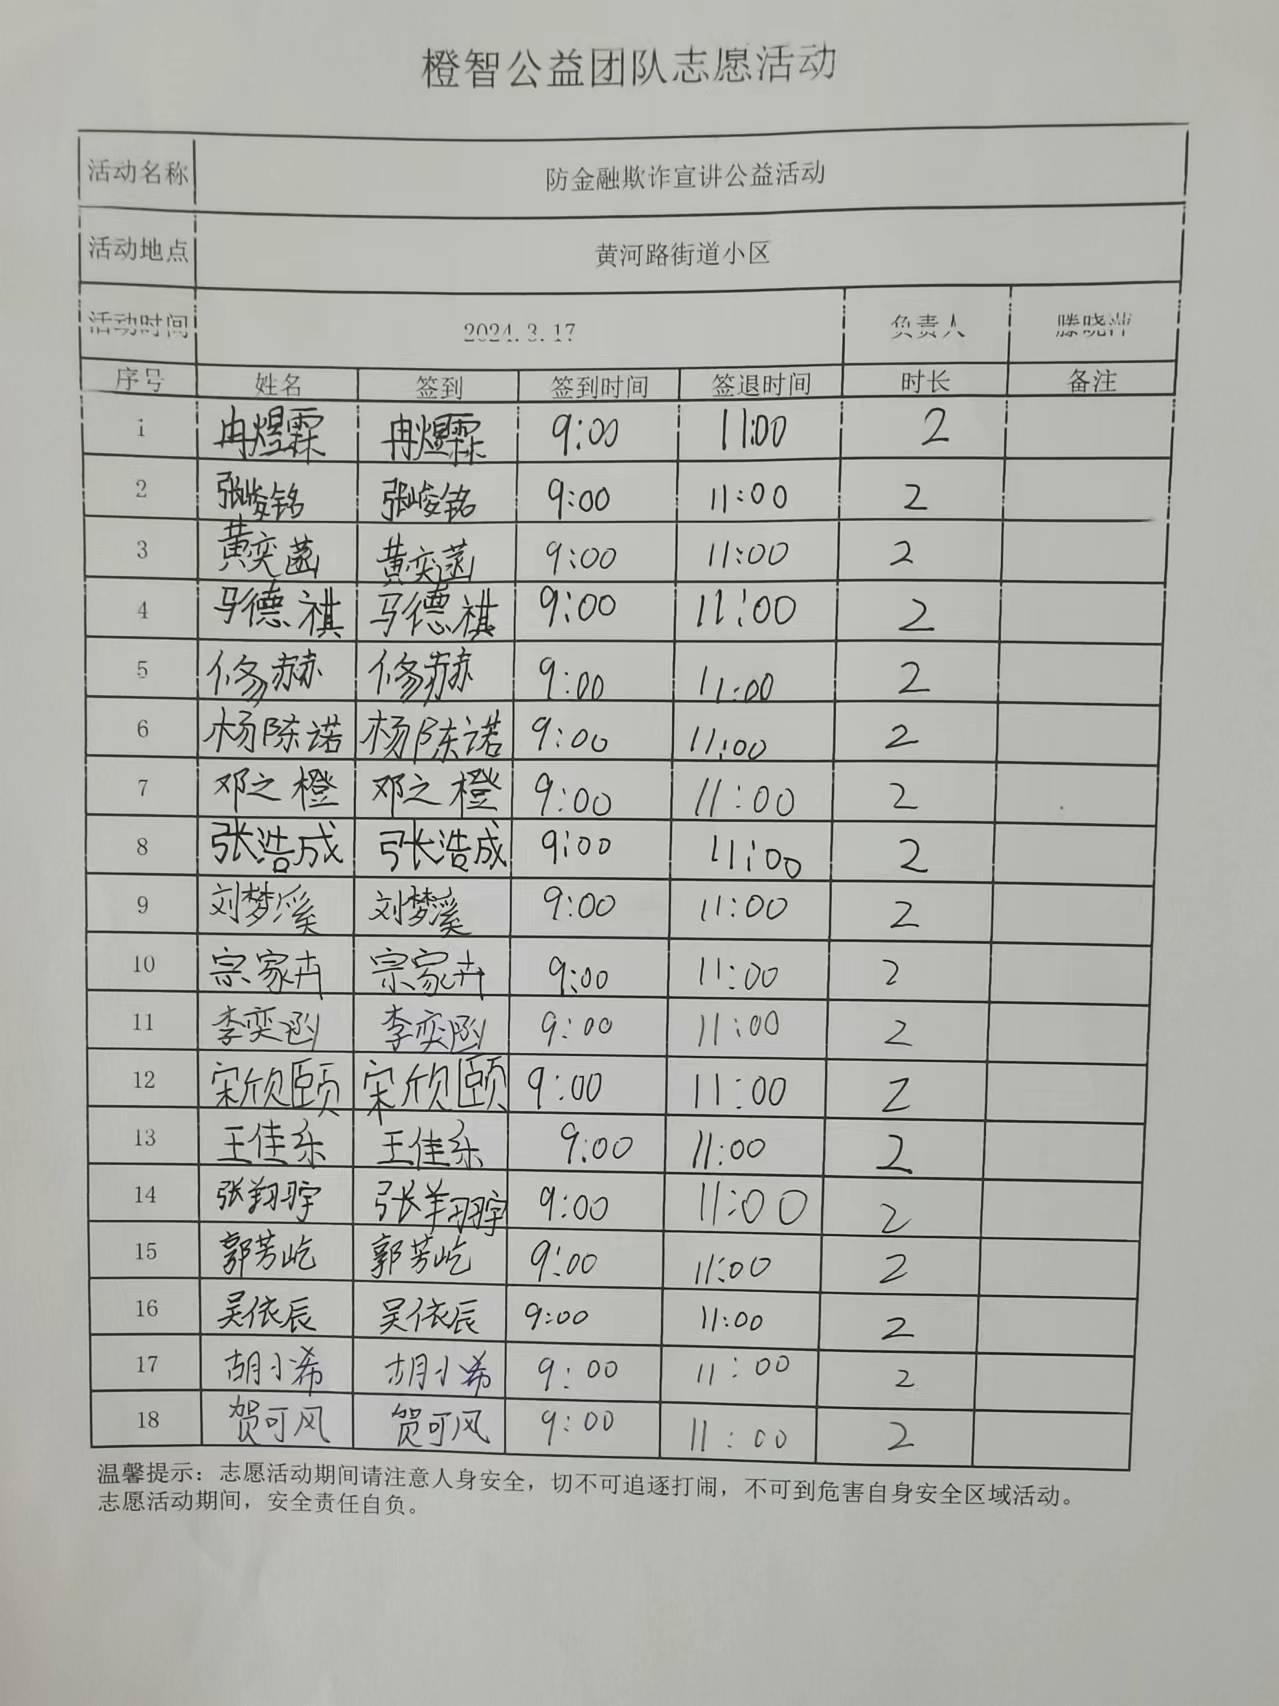 橙智公益团队志愿活动
活动名称 防金融欺诈宣讲公益活动
活动地点 黄河路街道小区
活动时间 2024.3.17 负责人 滕晓萍
序号 姓名 签到 签到时间 签退时间 时长 备注
1 冉煜霖 冉煜霖 9:00 11:00 2
2 张峻铭 张峻铭 9:00 11:00 2
3 黄奕菡 黄奕菡 9:00 11:00 2
4 马德祺 马德祺 9:00 11:00 2
5 修赫 修赫 9:00 11:00 2
6 杨陈诺 杨陈诺 9:00 11:00 2
7 邓之橙 邓之橙 9:00 11:00 2
8 张浩成 张浩成 9:00 11:00 2
9 刘梦溪 刘梦溪 9:00 11:00 2
10 宗家卉 宗家卉 9:00 11:00 2
11 李奕函 李奕函 9:00 11:00 2
12 宋欣颐 宋欣颐 9:00 11:00 2
13 王佳乐 王佳乐 9:00 11:00 2
14 张翔宇 张翔宇 9:00 11:00 2
15 郭芳屹 郭芳屹 9:00 11:00 2
16 吴依辰 吴依辰 9:00 11:00 2
17 胡小希 胡小希 9:00 11:00 2
18 贺可风 贺可风 9:00 11:00 2
温馨提示：志愿活动期间请注意人身安全，切不可追逐打闹，不可到危害自身安全区域活动。
志愿活动期间，安全责任自负。